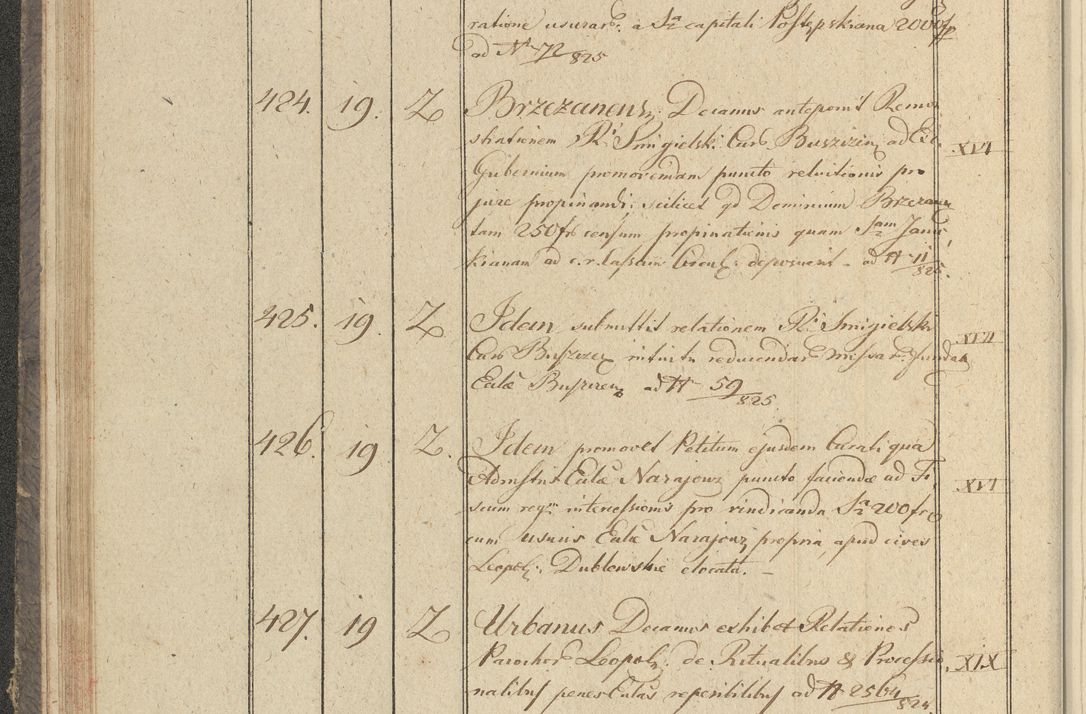 ratione usurar: a Sa capitali Postępskiana 2000 fr
ad N 72/825
424. 19. Z Brzezanens. Decanus anteponit Remon
strationem R. Smigielski Cur. Buszczien ad Exc. XVI
Gubernium promovendam puncto relutionis pro
jure propinandi, scilicet qd Dominium Brzezan
tam 250 fr censum propinationis quam Sam Janis
kianam ad c. r. Cassam Circul. deposuerit - ad N 11/825.
425. 19. Z Idem submittit relationem R. Smigielski XVII
Cur. Buszcze intuitu reducendar Missar. fundat
Ecclæ Buszczen ad N 59/825
426. 19 Z. Idem promovet Petitum ejusdem Curati qua
Admstri Ecclæ Narajow puncto faciendæ ad Fi XVI
scum reg. intercessionis pro vindicanda Sa 200 fr
cum usuris Ecclæ Narajow propria, apud cives
Leopol: Dublowskie elocata. -
427. 19 Z Urbanus Decanus exhibet Relationes
Parochor Leopol. de Ritualibus & Processio XIX
nalibus penes Ecclas reperibilibus ad N 2564/824.